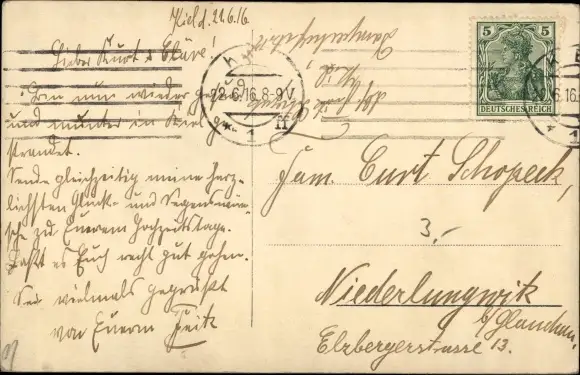 Kiel d. 21.6.16
Lieber Kurt & Kläre!
Bin nun wieder
und munter in Kiel ge-
strandet.
Sende gleichzeitig meine herz-
lichsten Glück- und Segenswün-
sche zu Euerem Hochzeitstage.
Laßt es Euch recht gut gehen.
Seid vielmals gegrüßt
von Euerm Fritz
22.6.16.8-9V.
1
5 5
DEUTSCHES REICH
Fam. Curt Schopeck,
3,-
Niederlungwitz
b/Glauchau,
Elzbergerstrasse 13.